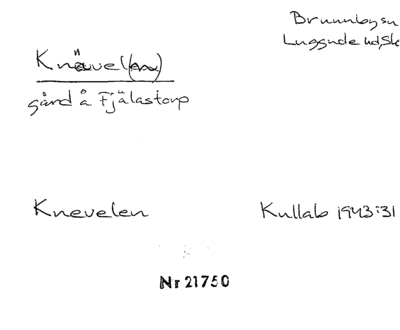 Brunnby sn
Luggude hd, Sk
Knävel(en)
gård å Fjälastorp
Knevelen
Kullab 1943:31
Nr 21750